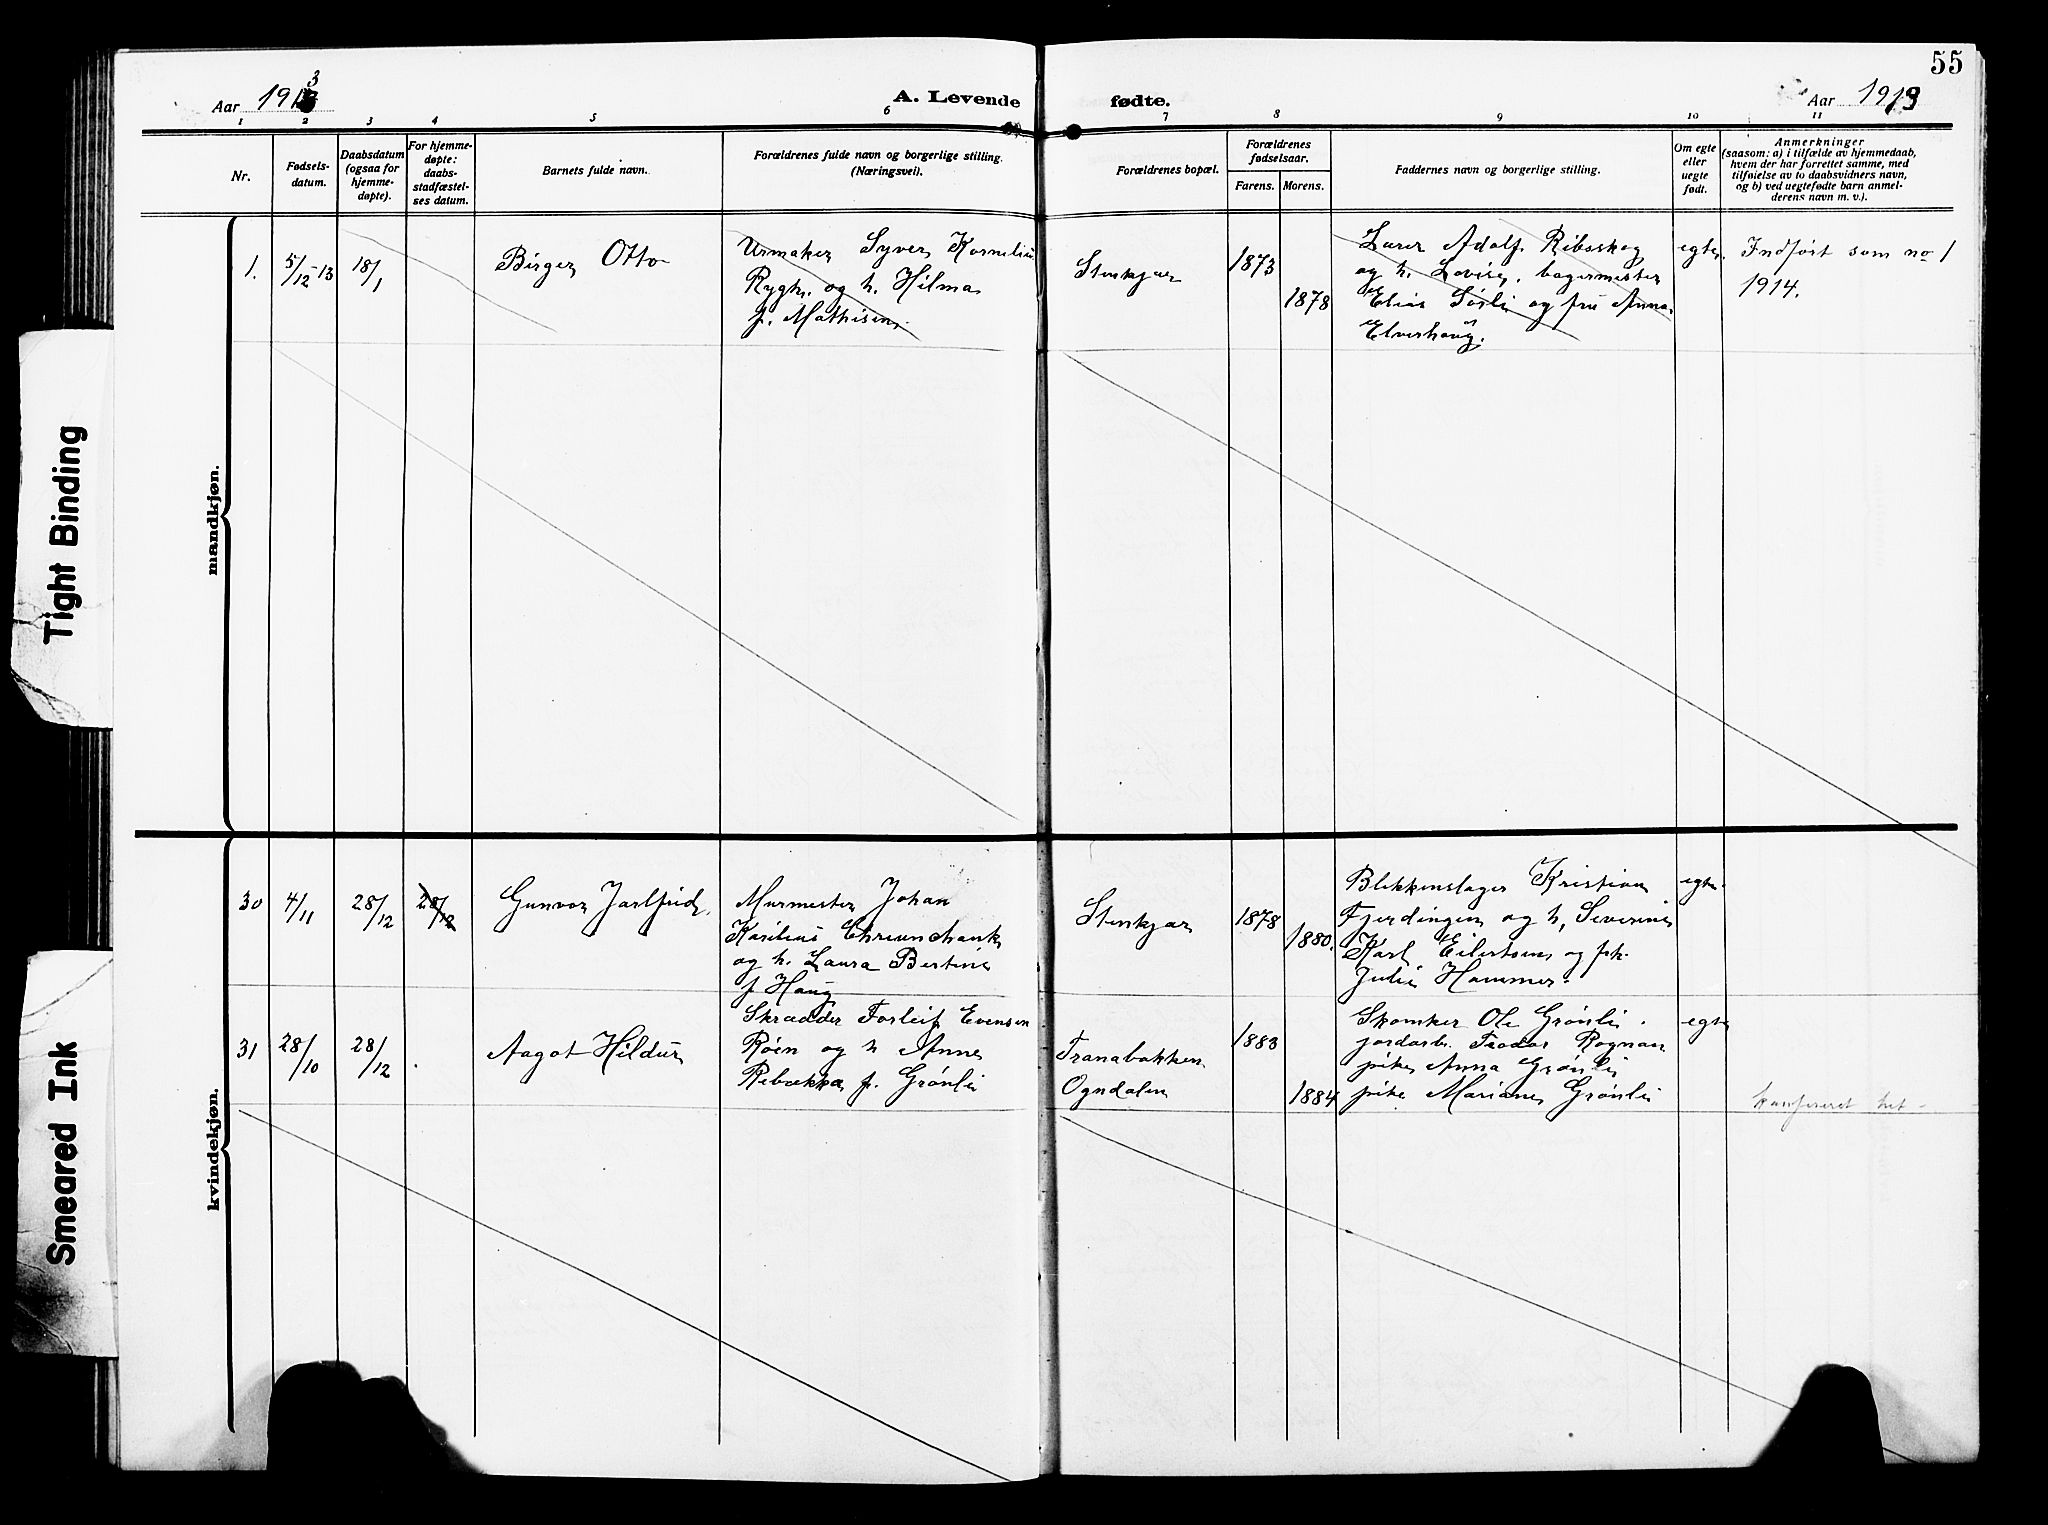 55
Aar 1913
A. Levende fødte.
Aar 1913
1 2 3 4 5 6 7 8 9 10 11
Nr.
Fødsels-
datum.
Daabsdatum
(ogsaa for
hjemme-
døpte).
For hjemme-
døpte:
daabs-
stadfæstel-
ses datum.
Barnets fulde navn.
Forældrenes fulde navn og borgerlige stilling.
(Næringsvei).
Forældrenes bopæl.
Forældrenes
fødselsaar.
Farens. Morens.
Faddernes navn og borgerlige stilling.
Om egte
eller
uegte
født.
Anmerkninger
(saasom: a) i tilfælde av hjemmedaab,
hvem der har forrettet samme, med
tilføielse av to daabsvidners navn,
og b) ved uegtefødte barn anmel-
derens navn m. v.).
mandkjøn.
1.
5/12-13
18/1
Birger Otto
Urmaker Syver Kornelius
Rygh og h. Hilma
f. Mathisen.
Stenkjær
1873
1878
Lærer Adolf Ribsskog
og h. Lovise, bagermester
Elias Sørli og fru Anna
Elverhaug.
egte.
Indført som no 1
1914.
kvindekjøn.
30
4/11
28/12
28/12
Gunvor Jarlfrid.
Murmester Johan
og h. Laura Bertine
f. Haug
Stenkjær
1878
1880.
Blikkenslager Kristian
Fjerdingen og h. Severine
Karl Eilertsen og frk.
Julie Hammer.
egte.
31
28/10
28/12
Aagot Hildur
Skrædder Torleif Evensen
Røen og h Anne
Rebekka f. Grønli
Tranabakken
Ogndalen
1883
1884
Skomaker Ole Grønli.
jordarb. Teodor Rognan
pike Anna Grønli
pike Mariane Grønli
egte
Tight Binding
Smeared Ink